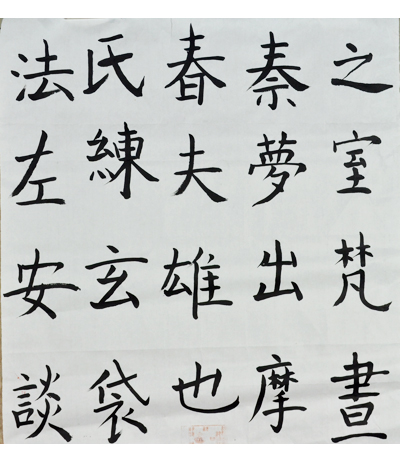 之室梵晝
秦夢出摩
春夫雄也
氏練玄袋
法左安談